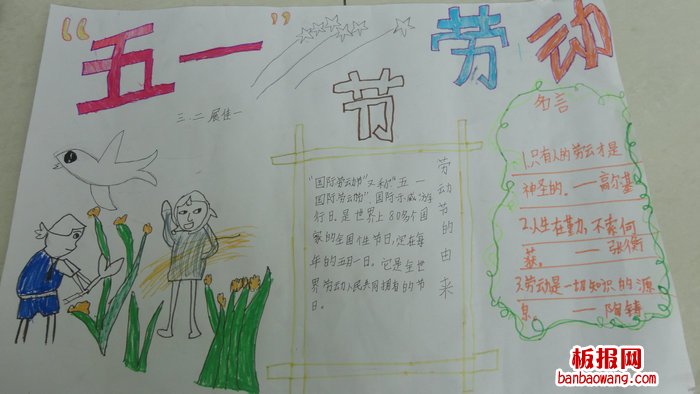 “五一”劳动
节
三.二展佳一
劳动节的由来
"国际劳动节"又称"五一
国际劳动节"、国际示威游
行日。是世界上80多个国
家的全国性节日,定在每
年的五月一日。它是全世
界劳动人民共同拥有的节
日。
名言
1.只有人的劳动才是
神圣的。——高尔基
2.人生在勤,不索何
获。——张衡
3.劳动是一切知识的源
泉。——陶铸
板报网
banbaowang.com